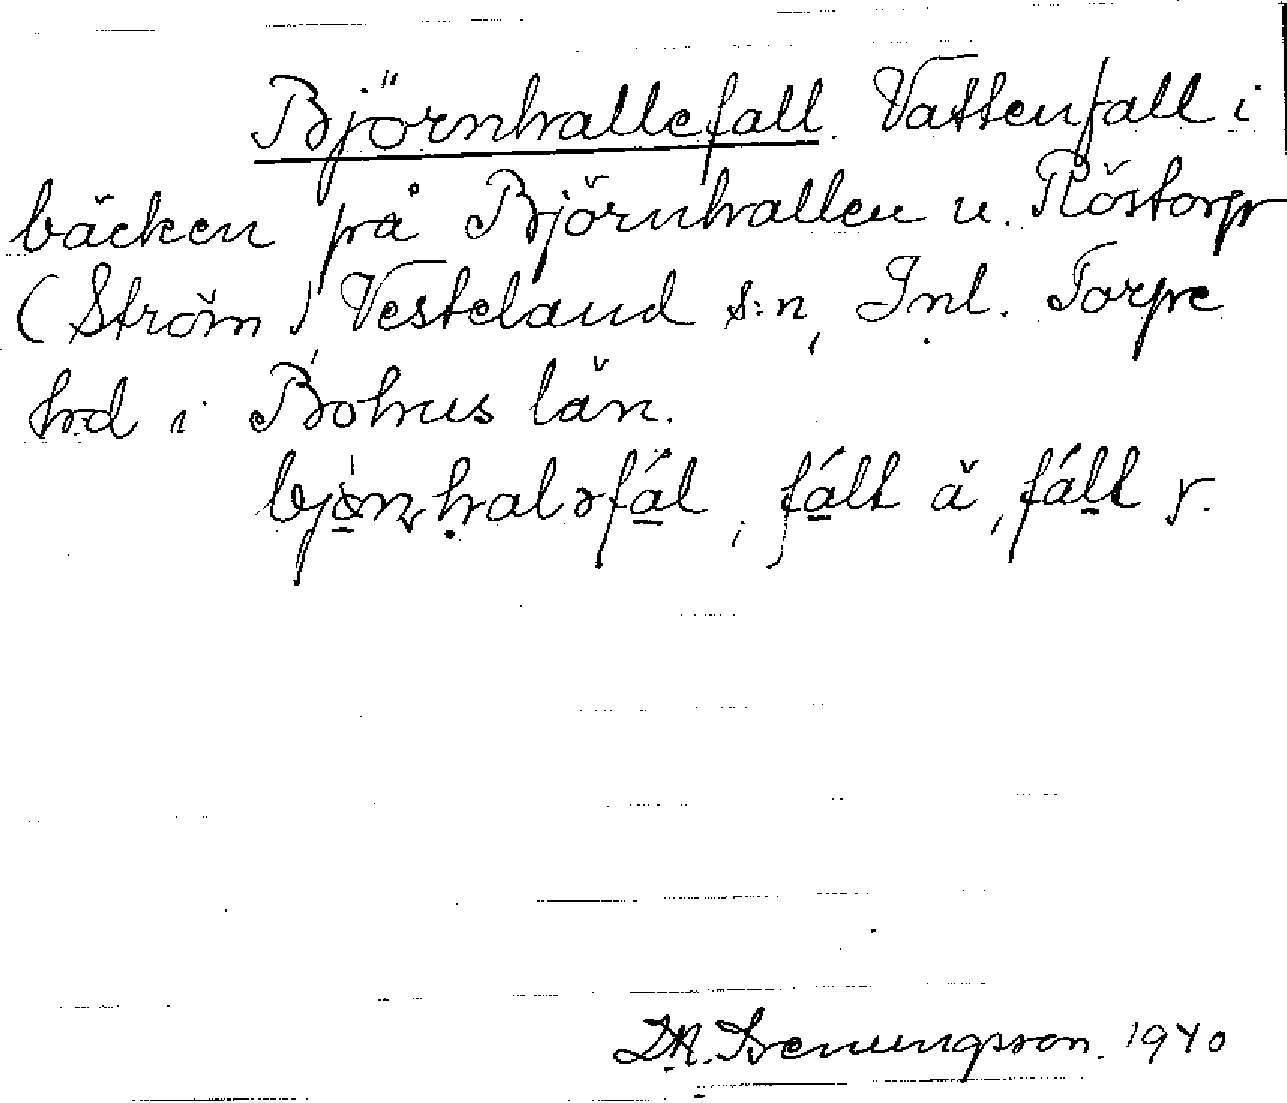 Björnhallefall. Vattenfall i
bäcken på Björnhallen u. Röstorp
(Ström) Vesteland s:n, Inl. Torpe
hd i Bohus län.
bjönhaləfál, fált ä, fált
D.A. Grenungson. 1940